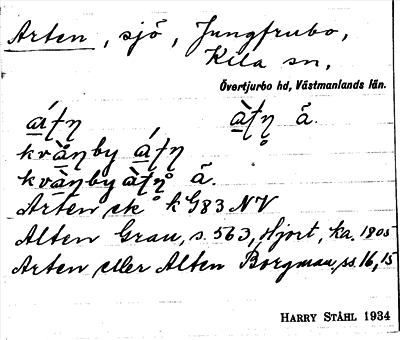 Arten, sjö, Jungfrubo,
Kila sn,
Övertjurbo hd, Västmanlands län.
kvånby
kvånby å.
Arten ek kG83 NV
Alten Grau, s. 563, Hjort, ka. 1805
Arten eller Alten Borgman, ss. 16, 15
HARRY STÅHL 1934